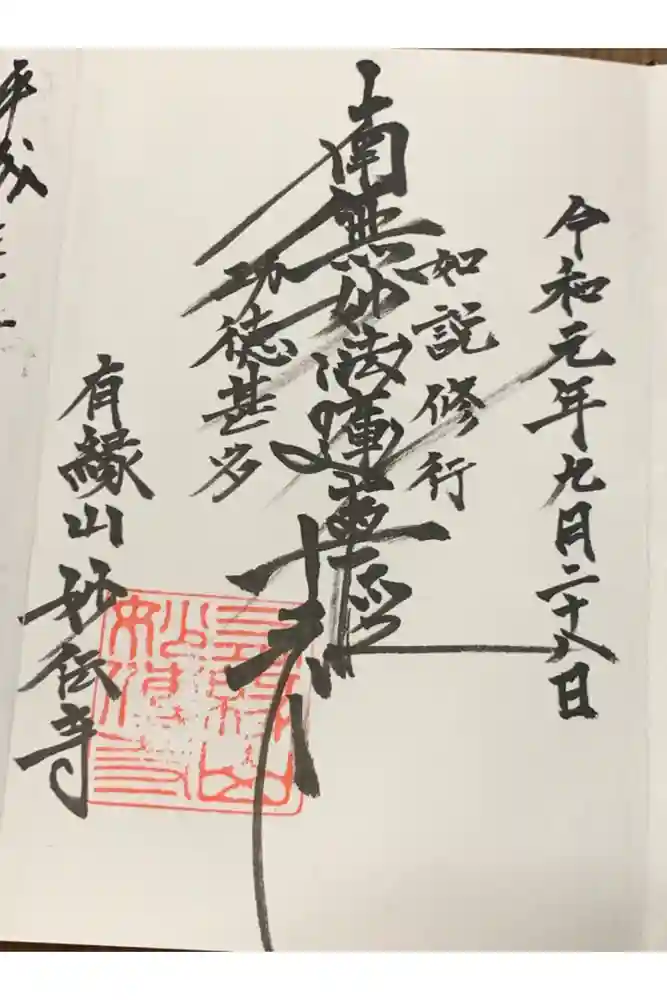 令和元年九月二十八日
如説修行
南無妙法蓮華経
功徳甚多
有縁山妙伝寺
平成